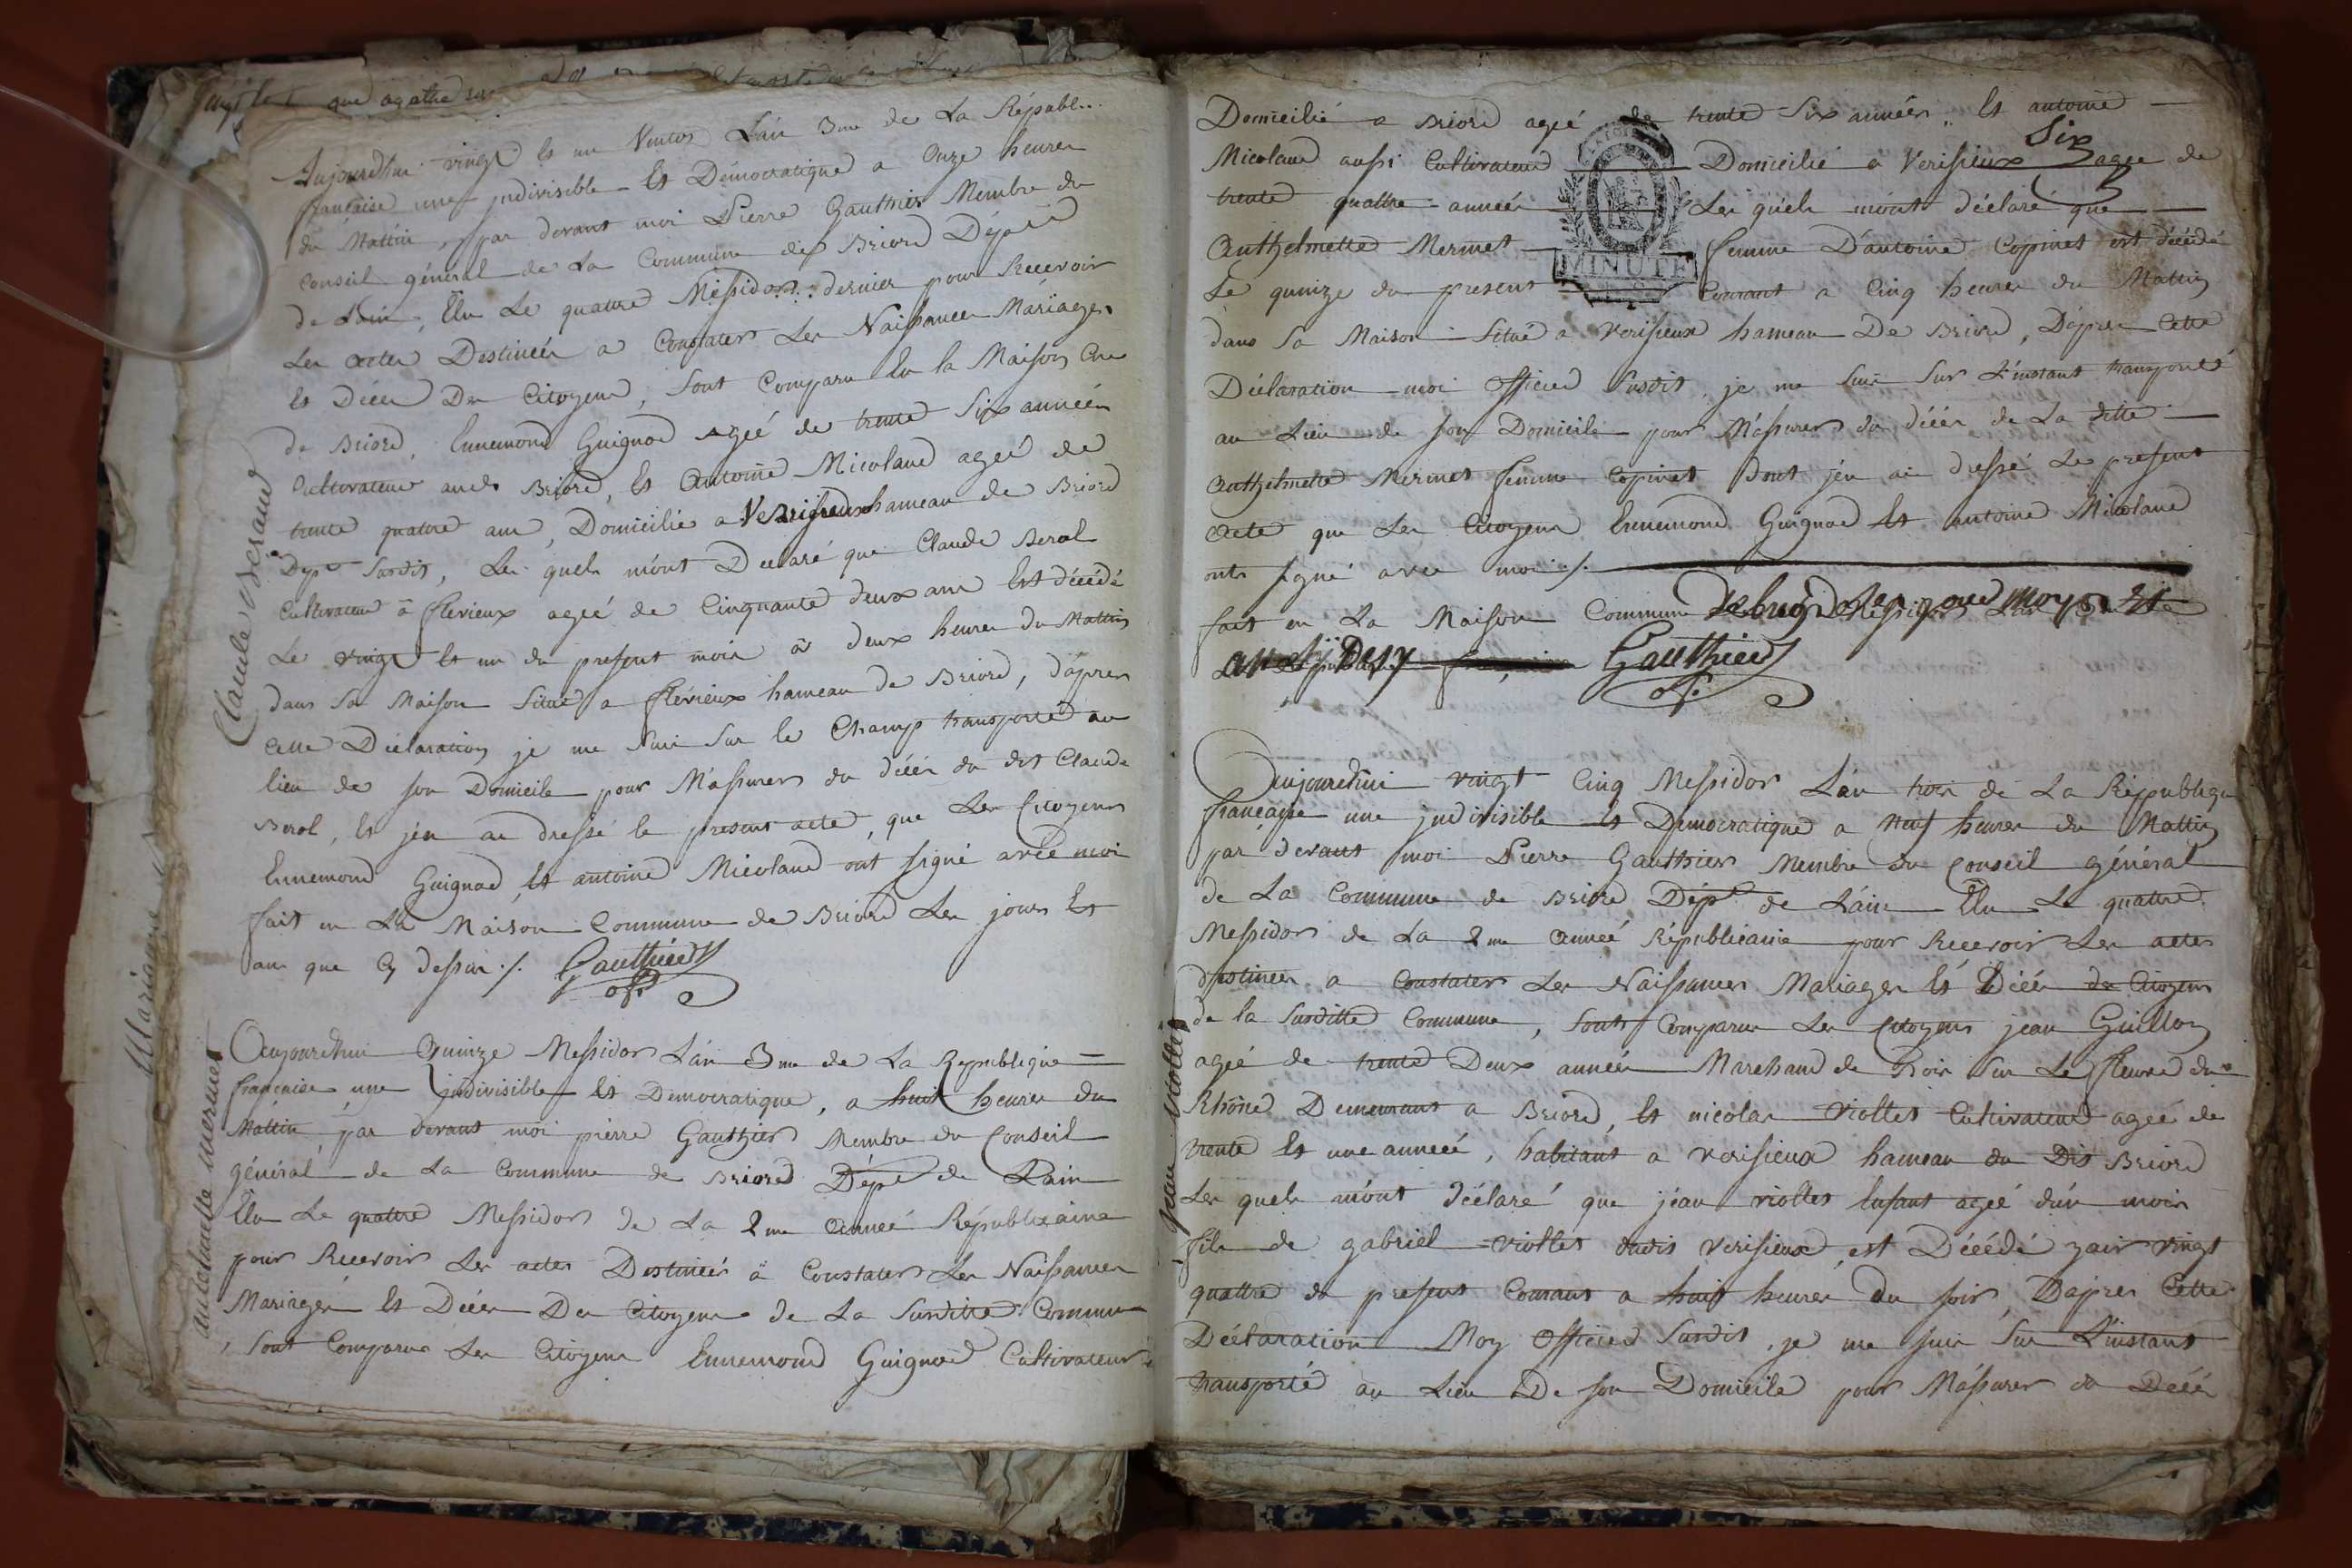 que agathe
Aujourdhui vingt Et un Ventos L'an 3me de La Républ...
française une jndivisible Et Démocratique a Onze heures
du Mattin, par devant moi Pierre Gauthier Membre du
Conseil général de La Commune de Briord
de L'ain, Elu Le quatre Messidor dernier pour Recevoir
Les actes Destinéés a Constater Les Naissances Mariages
Et Décés Des Citoyens, sont Comparu En la Maison Cne
de Briord, Ennemond Guignod Agéé de trente Six annéés
Cultivateur audt Briord, Et Antoine Micoland agéé de
trente quattre ans, Domicilié a Verisieux hameau de Briord
Dept Susdit, Les quels m'ont Declaré que Claude Berol
Cultivateur à flévieux agéé de Cinquante deux ans Est décédé
Le vingt Et un du present mois à deux heures du Mattin
dans Sa Maison Situé a flévieux hameau de Briord, d'apres
Cette Déclaration je me Suis Sur le Champ transporté au
lieu de son Domicile pour M'assurer du décés du dit Claude
Berol, Et j'en ai dressé le present acte, que Les Citoyens
Ennemond Guignod, Et antoine Micoland ont signé avec moi
fait en La Maison Commune de Briord Les jours Et
an que Cy dessus ./. Gauthier
off.
Claude
Marianne
Aujourdhui Quinze Messidor L'an 3me de La Republique
française une jndivisible Et Democratique, a huit heures du
Mattin par devant moi pierre Gauthier Membre du Conseil
général de La Commune de Briord Dépt de L'ain
Elu Le quattre Messidor de La 2me Anneé Républicaine
pour Recevoir Les actes Destinéés à Constater Les Naissances
Mariages Et Décés Des Citoyens de La Susditte Commune
, sont Comparus Les Citoyens Ennemond Guignod Cultivateur
anthelmette mermet
Domicilié a Briord agéé de trente Six annéés, Et antoine
Micoland aussi Cultivateur Domicilié a Verisieux Six agee de
trente quattre annéés Les quels m'ont déclaré que
Anthelmette Mermet femme D'antoine Copinet est décédé
Le quinze du present Courant a Cinq heures du Mattin
MINUTE
dans Sa Maison Situé a Verisieux hameau De Briord, D'apres Cette
Déclaration moi Officier Susdit, je me Suis Sur L'instant transporté
au Lieu de son Domicile pour M'assurer du décés de La ditte
Anthelmette Mermet femme Copinet Dont j'en ai dressé Le present
Acte que Les Citoyens Ennemond Guignod Et antoine Micoland
onts signé avec moi ./.
fait en La Maison Commune
Gauthier
off.
Aujourdhui vingt Cinq Messidor L'an trois de La Républiqu
française une jndivisible Et Democratique a Neuf heures du Mattin
par devant moi Pierre Gauthier Membre du Conseil général
de La Commune de Briord Dépt de L'ain Elu Le quattre
Messidor de La 2me Anneé Républicaine pour Recevoir Les actes
destinéés a Constater Les Naissances Mariages Et Décés de Citoyens
de la Susditte Commune, Sonts Comparus Les Citoyens jean Guillon
agéé de trente Deux annéés Marchand de Bois Sur Le fleuve du
Rhône Demeurant a Briord, Et nicolas viollet Cultivateur agéé de
trente Et une annéé, habitant a Verisieux hameau du Dit Briord
Les quels m'ont déclaré que jean viollet Enfant agéé d'un mois
fils de gabriel viollet dudit Verisieux, est Décédé yair vingt
quattre du present Courant a huit heures Du soir, D'apres Cette
Déclaration Moy Officier Susdit, je me suis Sur L'instant
transporté au Lieu De son Domicile pour M'assurer du Décés
jean viollet